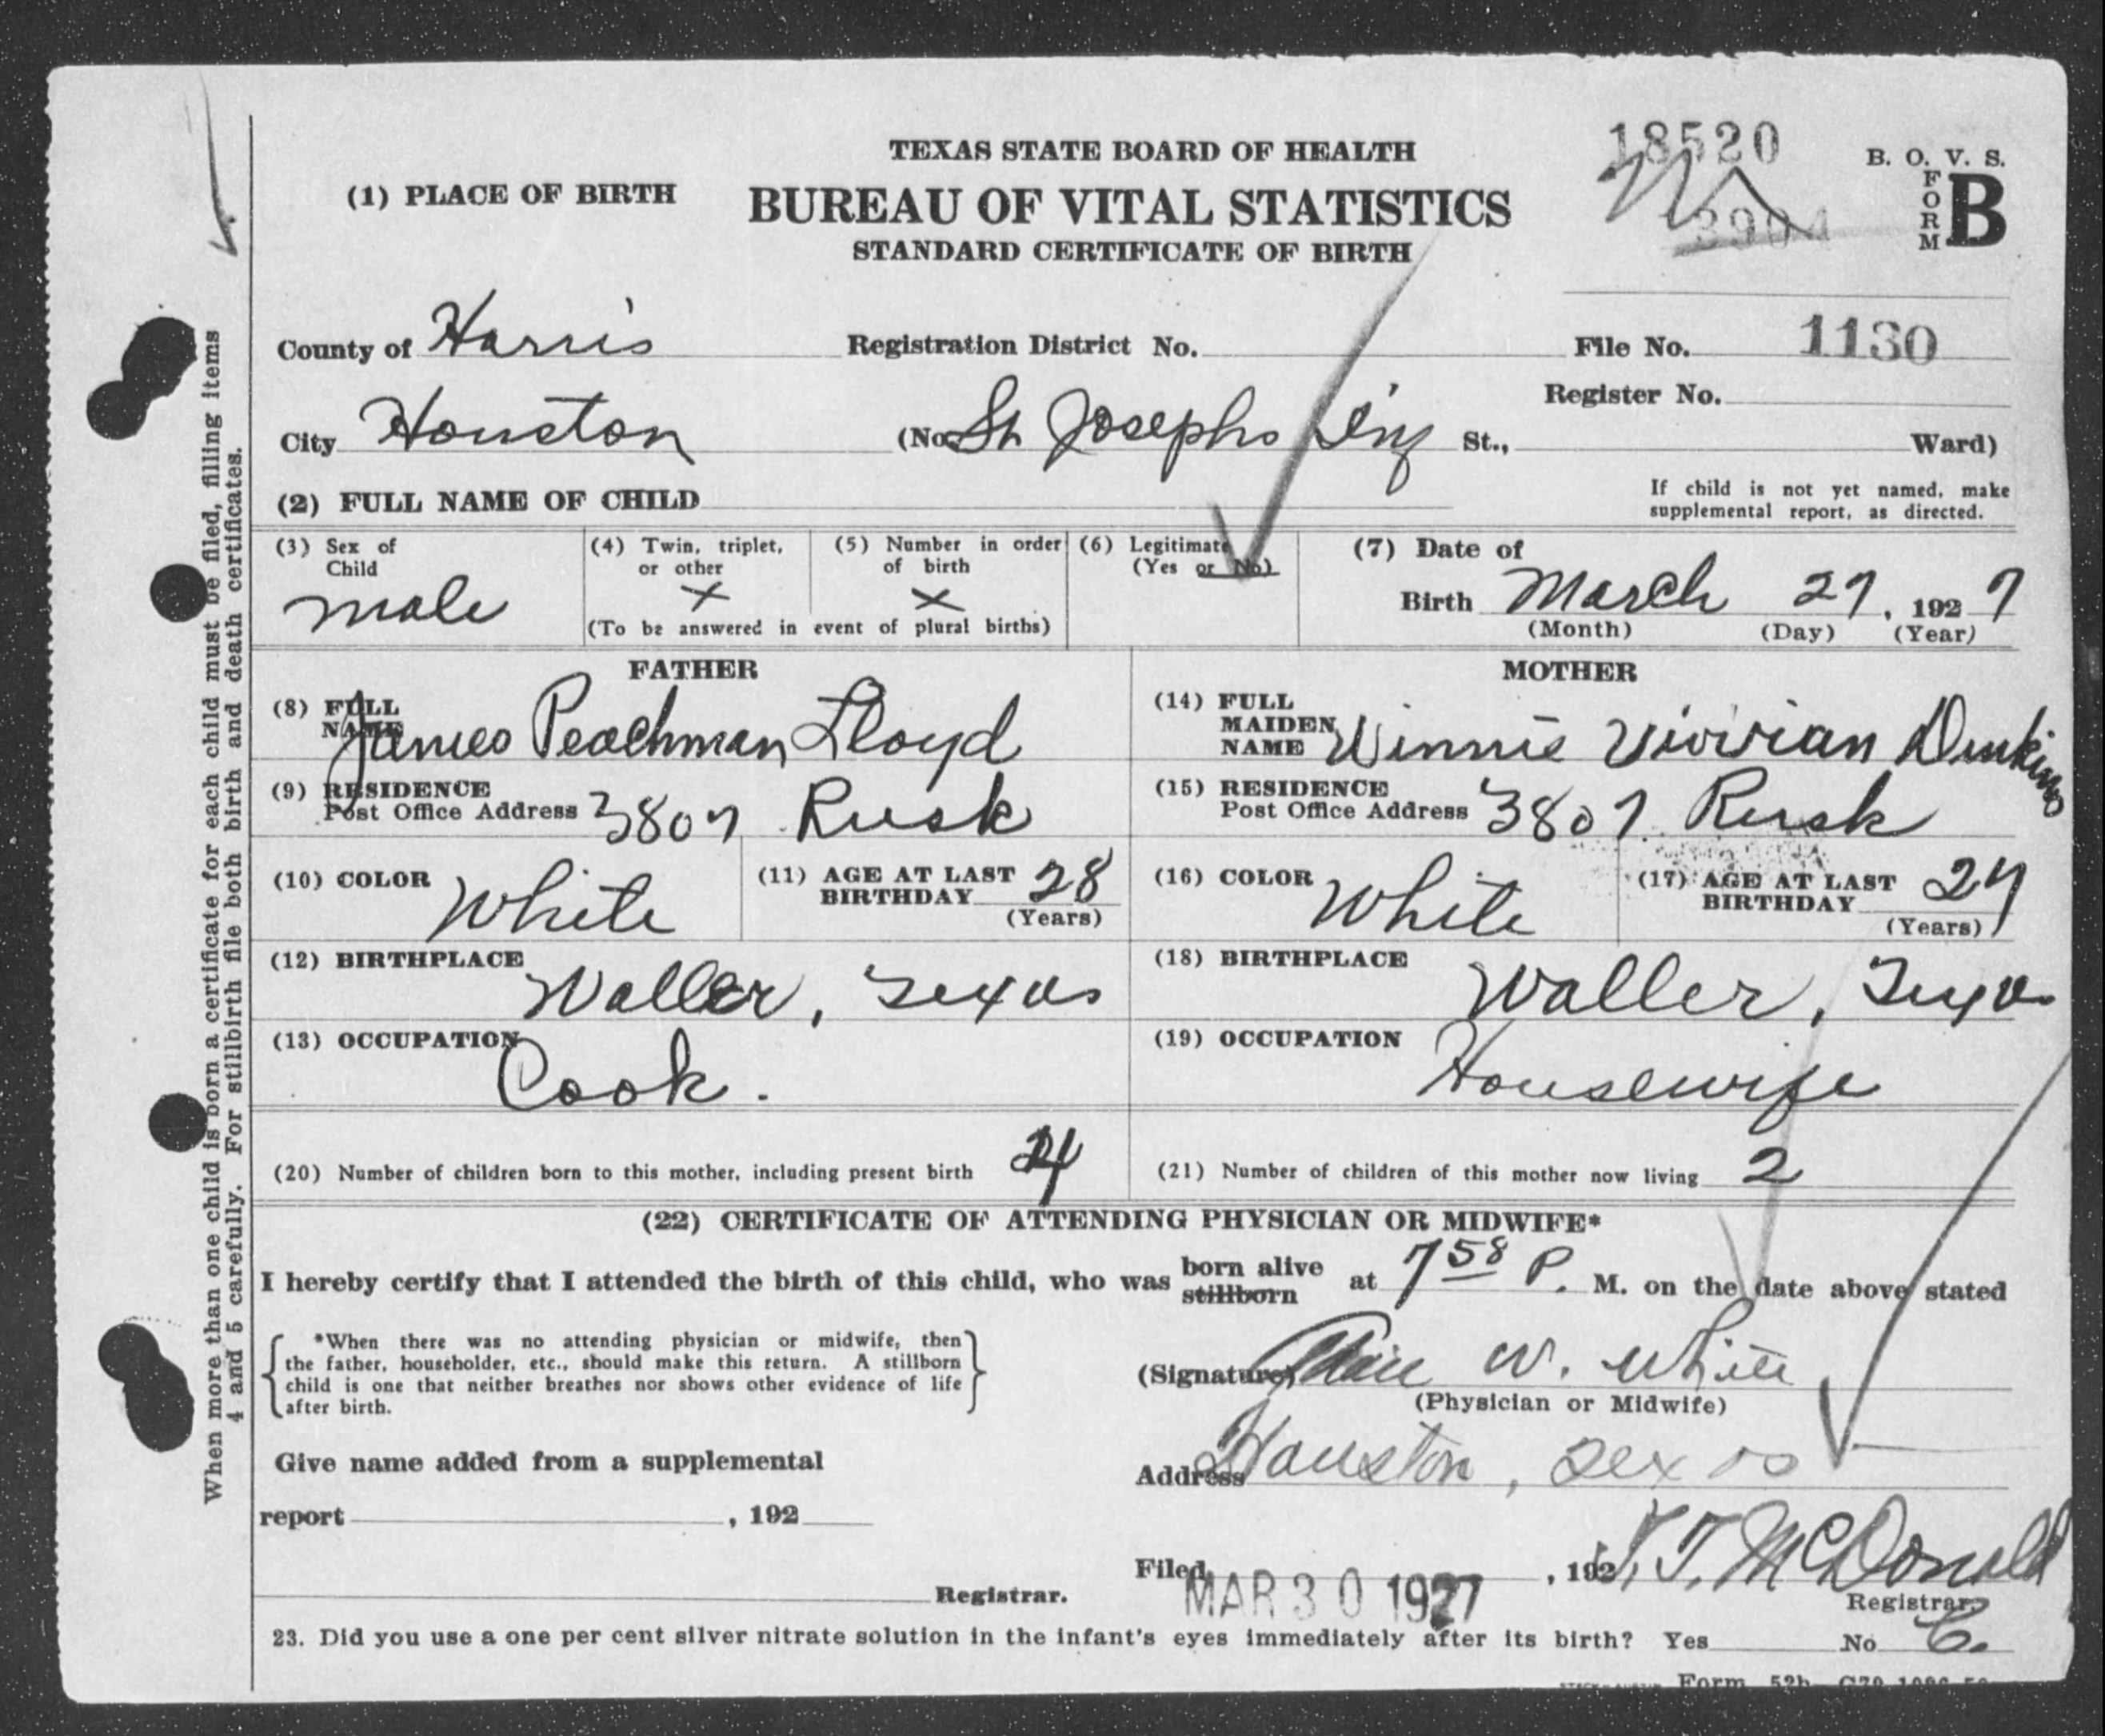 18520
TEXAS STATE BOARD OF HEALTH
B. O. V. S.
(1) PLACE OF BIRTH
BUREAU OF VITAL STATISTICS
3904
FORM B
STANDARD CERTIFICATE OF BIRTH
County of Harris Registration District No. File No. 1130
Register No.
City Houston (No. St Josephs Inf St., Ward)
(2) FULL NAME OF CHILD
If child is not yet named, make
supplemental report, as directed.
(3) Sex of Child male
(4) Twin, triplet, or other X
(5) Number in order of birth X
(To be answered in event of plural births)
(6) Legitimate (Yes or No)
(7) Date of
Birth March 27, 1927
(Month) (Day) (Year)
FATHER
(8) FULL NAME James Peachman Lloyd
(9) RESIDENCE
Post Office Address 3807 Rusk
(10) COLOR White
(11) AGE AT LAST BIRTHDAY 28
(Years)
(12) BIRTHPLACE Waller, Texas
(13) OCCUPATION Cook.
MOTHER
(14) FULL MAIDEN NAME Winnie Vivirian
(15) RESIDENCE
Post Office Address 3807 Rusk
(16) COLOR White
(17) AGE AT LAST BIRTHDAY 27
(Years)
(18) BIRTHPLACE Waller,
(19) OCCUPATION Housewife
(20) Number of children born to this mother, including present birth 4
(21) Number of children of this mother now living 2
(22) CERTIFICATE OF ATTENDING PHYSICIAN OR MIDWIFE*
I hereby certify that I attended the birth of this child, who was born alive stillborn at 7 58 P. M. on the date above stated
*When there was no attending physician or midwife, then
the father, householder, etc., should make this return. A stillborn
child is one that neither breathes nor shows other evidence of life
after birth.
(Signature) W. White
(Physician or Midwife)
Give name added from a supplemental
Address Houston, Texas
report , 192
Filed MAR 30 1927 , 192 T. McDonald
Registrar.
Registrar.
23. Did you use a one per cent silver nitrate solution in the infant's eyes immediately after its birth? Yes No C.
When more than one child is born a certificate for each child must be filed, filling items
4 and 5 carefully. For stillbirth file both birth and death certificates.